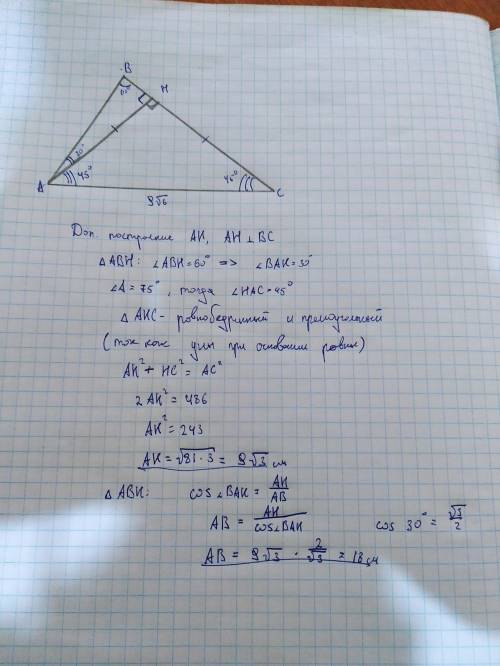 B
60°
H
30°
45°
A
45°
C
9√6
Доп. построение AH, AH ⊥ BC
△ABH: ∠ABH = 60° => ∠BAH = 30°
∠A = 75°, тогда ∠HAC = 45°
△AHC - равнобедренный и прямоугольный
(так как углы при основании равны)
AH² + HC² = AC²
2AH² = 486
AH² = 243
AH = √81·3 = 9√3 см
△ABH: cos∠BAH = AH/AB
AB = AH/cos∠BAH cos 30° = √3/2
AB = 9√3 · 2/√3 = 18 см